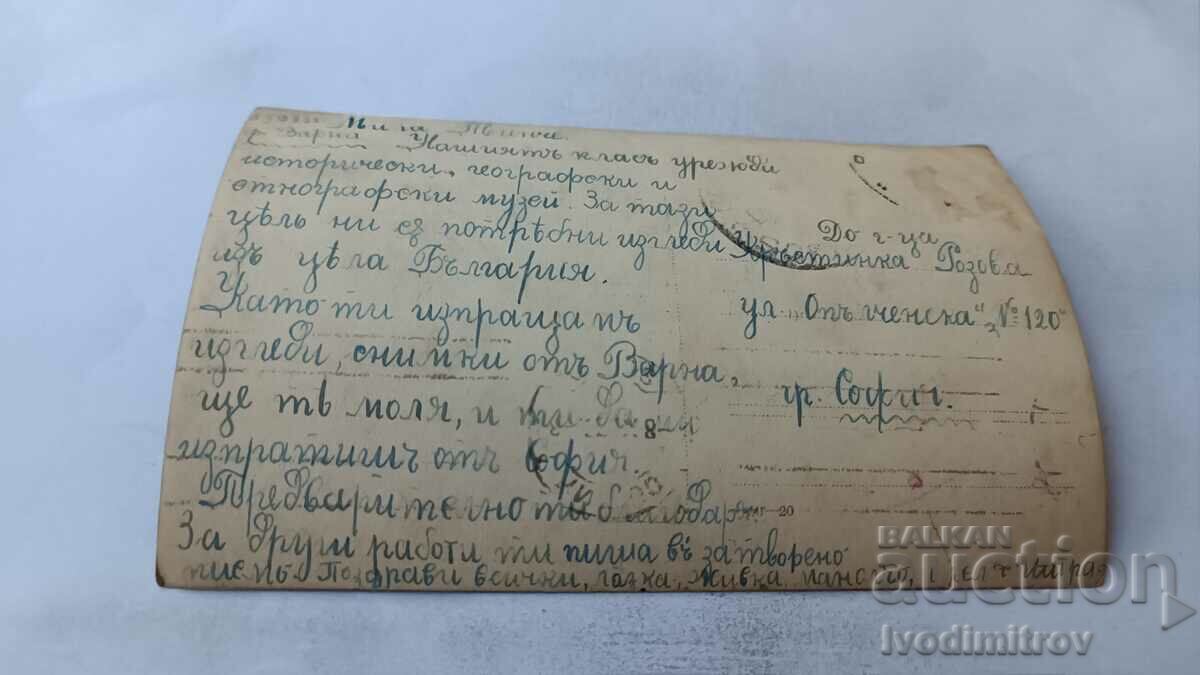 Варна Нашиятъ класъ урежда
исторически, географски и
етнографски музей. За тази
цѣль ни сѫ потрѣбни изгледи
изъ цѣла България.
Като ти изпращамъ
изгледи, снимки отъ Варна,
ще те моля, и ти да
изпратишъ отъ София.
Предварително ти благодаря.
За други работи ти пиша въ затворено
писмо. Поздрави всички, Живка,
До г-ца
Кръстинка Розова
ул. „Опълченска“ № 120
гр. София.
8
20
BALKAN
auction
Ivodimitrov